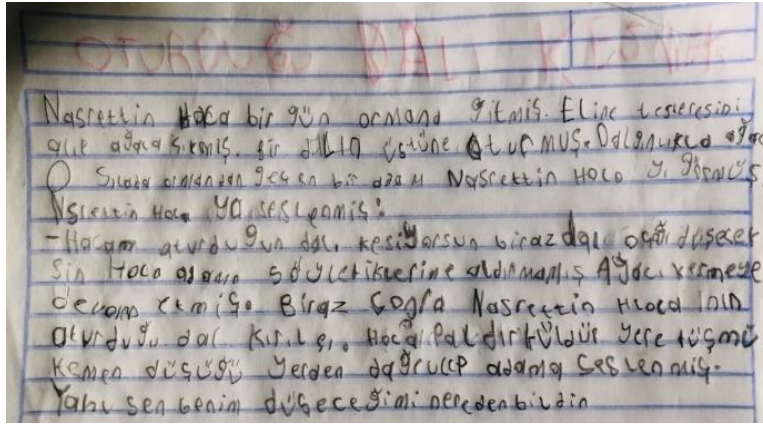 OTURDUĞU DALI KESMEK
Nasrettin Hoca bir gün ormana gitmiş. Eline testeresini
alıp ağaca çıkmış. bir dalın üstüne oturmuş. Dalgınlıkla
O Sırada ormandan geçen bir adam Nasrettin Hoca yı görmüş
Nasrettin Hoca ya seslenmiş:
-Hocam oturduğun dalı kesiyorsun biraz dal düşecek
sin Hoca adamın söylediklerine aldırmamış Ağacı kesmeye
devam etmiş. Biraz Soğra Nasrettin Hoca nın
oturduğu dal kırılmış. Hoca paldır küldür yere düşmü
Kemen düşüğü yerden dağrulup adama seslenmiş.
Yahu sen benim düşeceğimi nereden bildin